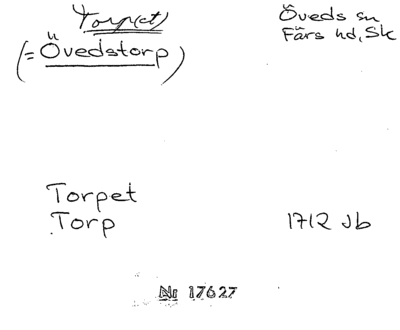 Torp(et)
(= Övedstorp)
Öveds sn
Färs hd, Sk
Torpet
Torp
1712 Jb
Nr 17627